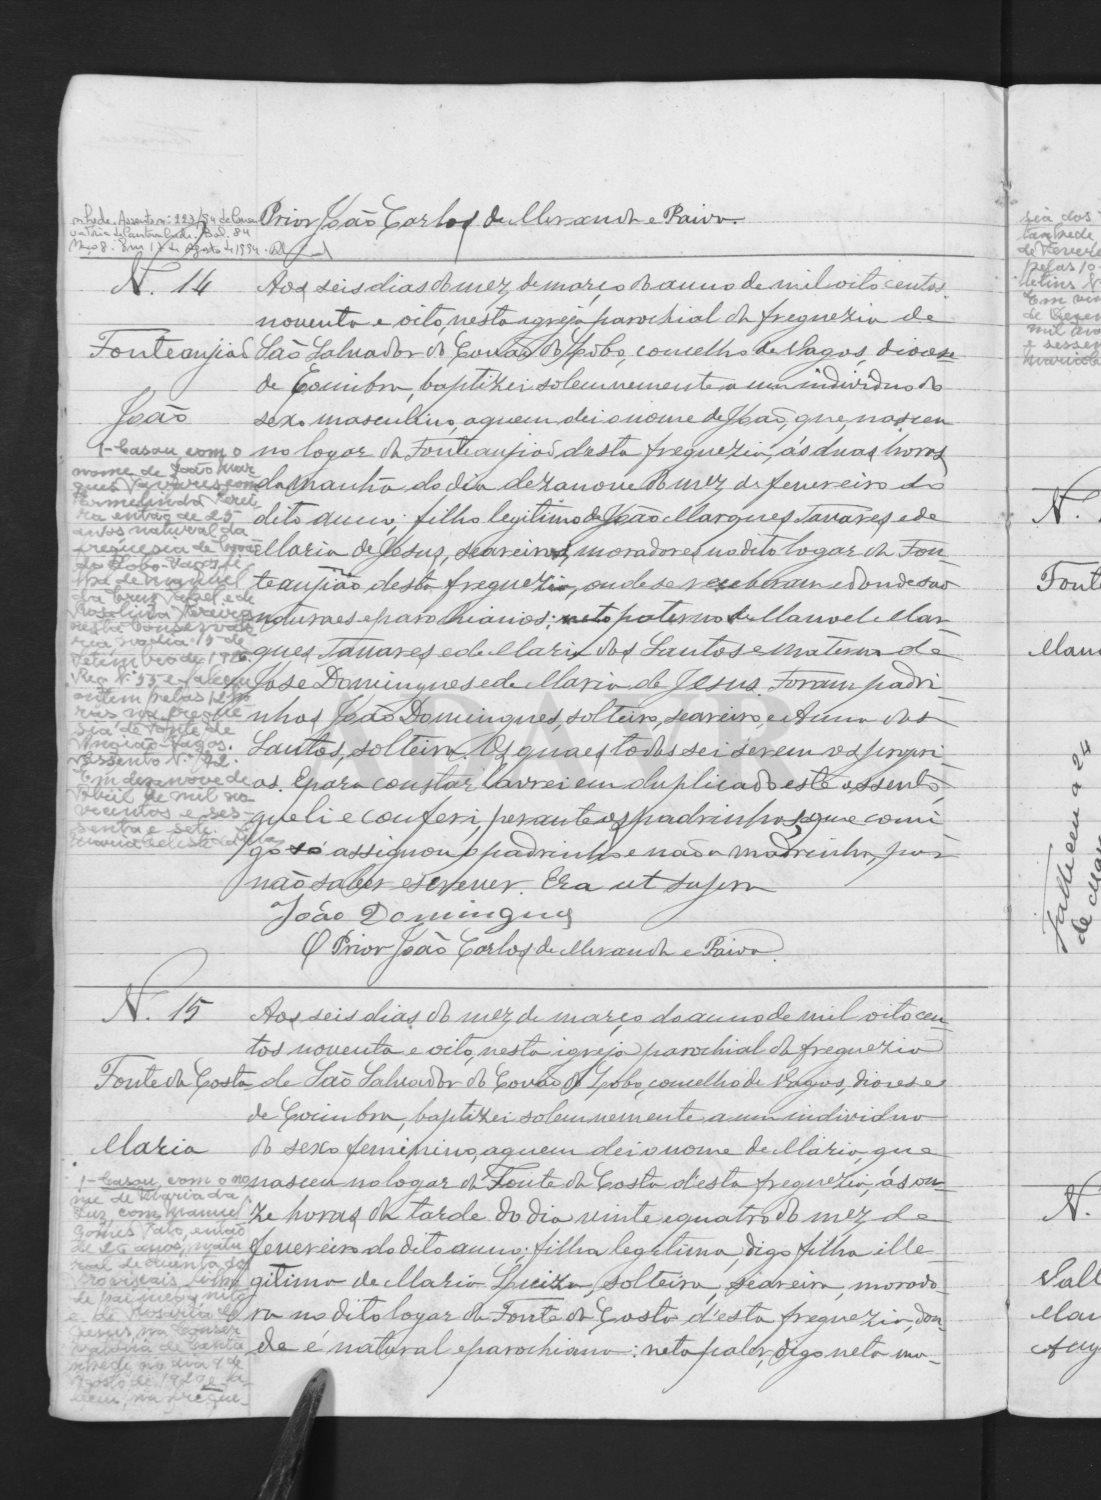 Prior João Carlos de Miranda e Paiva.
N. 14
Fonteanjiaõ
João
Aos seis dias do mez de março do anno de mil oito centos
noventa e oito, nesta igreja parochial da freguezia de
São Salvador do Covão do Lobo, concelho de Vagos, diocese
de Coimbra, baptizei solemnemente a um individuo do
sexo masculino, a quem dei o nome de João, que nasceu
no logar da Fonteanjiaõ, d'esta freguezia, ás duas horas
da manhã do dia dezanove do mez de fevereiro do
dito anno; filho legitimo de João Marques Tavares e de
Maria de Jesus, seareiros, moradores no dito logar da Fon-
teanjião desta freguezia, onde se receberam e donde são
naturaes e parochianos; neto paterno de Manoel Mar-
ques Tavares e de Maria dos Santos e materno de
José Domingues e de Maria de Jesus. Foram padri-
nhos João Domingues, solteiro, seareiro, e Anna dos
Santos, solteira. Os quaes todos sei serem os propri-
os. E para constar lavrei em duplicado este assento,
que li e conferi, perante os padrinhos, que comi-
go só assignou o padrinho e não a madrinha, por
não saber escrever. Era ut supra
João Domingues
O Prior João Carlos de Miranda e Paiva.
1- Casou com o
nome de João Mar
ques Tavares com
Ermelinda Perei
ra então de 25
anos natural da
freguesia de Covão
do Lobo-Vagos fi-
lha de Manuel
da Cruz
Rosalina Pereira
nesta Conservató
ria, no dia 15 de
Setembro de 1926.
e faleceu
ontem pelas
na fregue
sia de Ponte de
Vagos.
Assento Nº 72.
Em dezanove de
Abril de mil no
vecentos e ses-
senta e sete.
N. 15
Fonte da Costa
Maria
Aos seis dias do mez de março do anno de mil oito cen-
tos noventa e oito, nesta igreja parochial da freguezia
de São Salvador do Covão do Lobo, concelho de Vagos, diocese
de Coimbra, baptizei solemnemente a um individuo
do sexo feminino, a quem dei o nome de Maria, que
nasceu no logar da Fonte da Costa d'esta freguezia, ás on-
ze horas da tarde do dia vinte e quatro do mez de
fevereiro do dito anno; filha legitima, digo filha ille
gitima de Maria Luiza, solteira, seareira, morado-
ra no dito logar da Fonte da Costa d'esta freguezia, don-
de é natural e parochiana: neta pater, digo neta ma-
1- Casou com o no
me de Maria da
Luz com Manuel
Gomes Pato, então
de 26 anos, natu
ral de
filho
de pai incognito
e de Rosaria de
Jesus, na Conser
vatória de Canta
nhede no dia 7 de
Agosto de 1920 e fa
leceu, na fregue-
N.
Fonte
Man
Falleceu a 24
de
N.